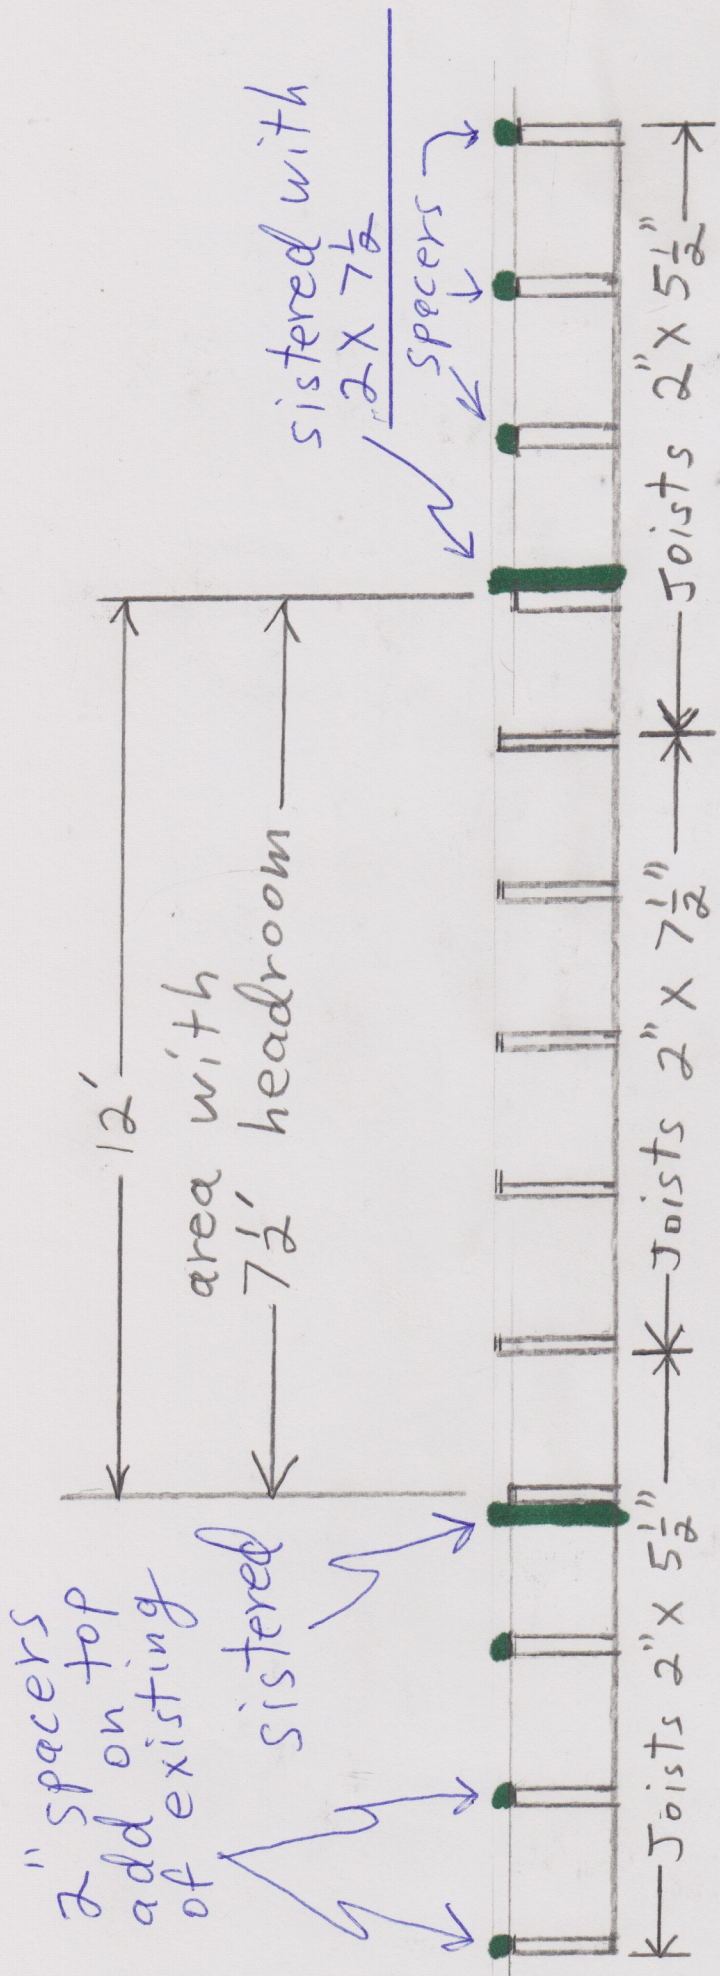 2" spacers
add on top
of existing
sistered
12'
area with
7 1/2' headroom
sistered with
2 X 7 1/2
spacers
Joists 2" X 5 1/2"
Joists 2" X 7 1/2"
Joists 2" X 5 1/2"